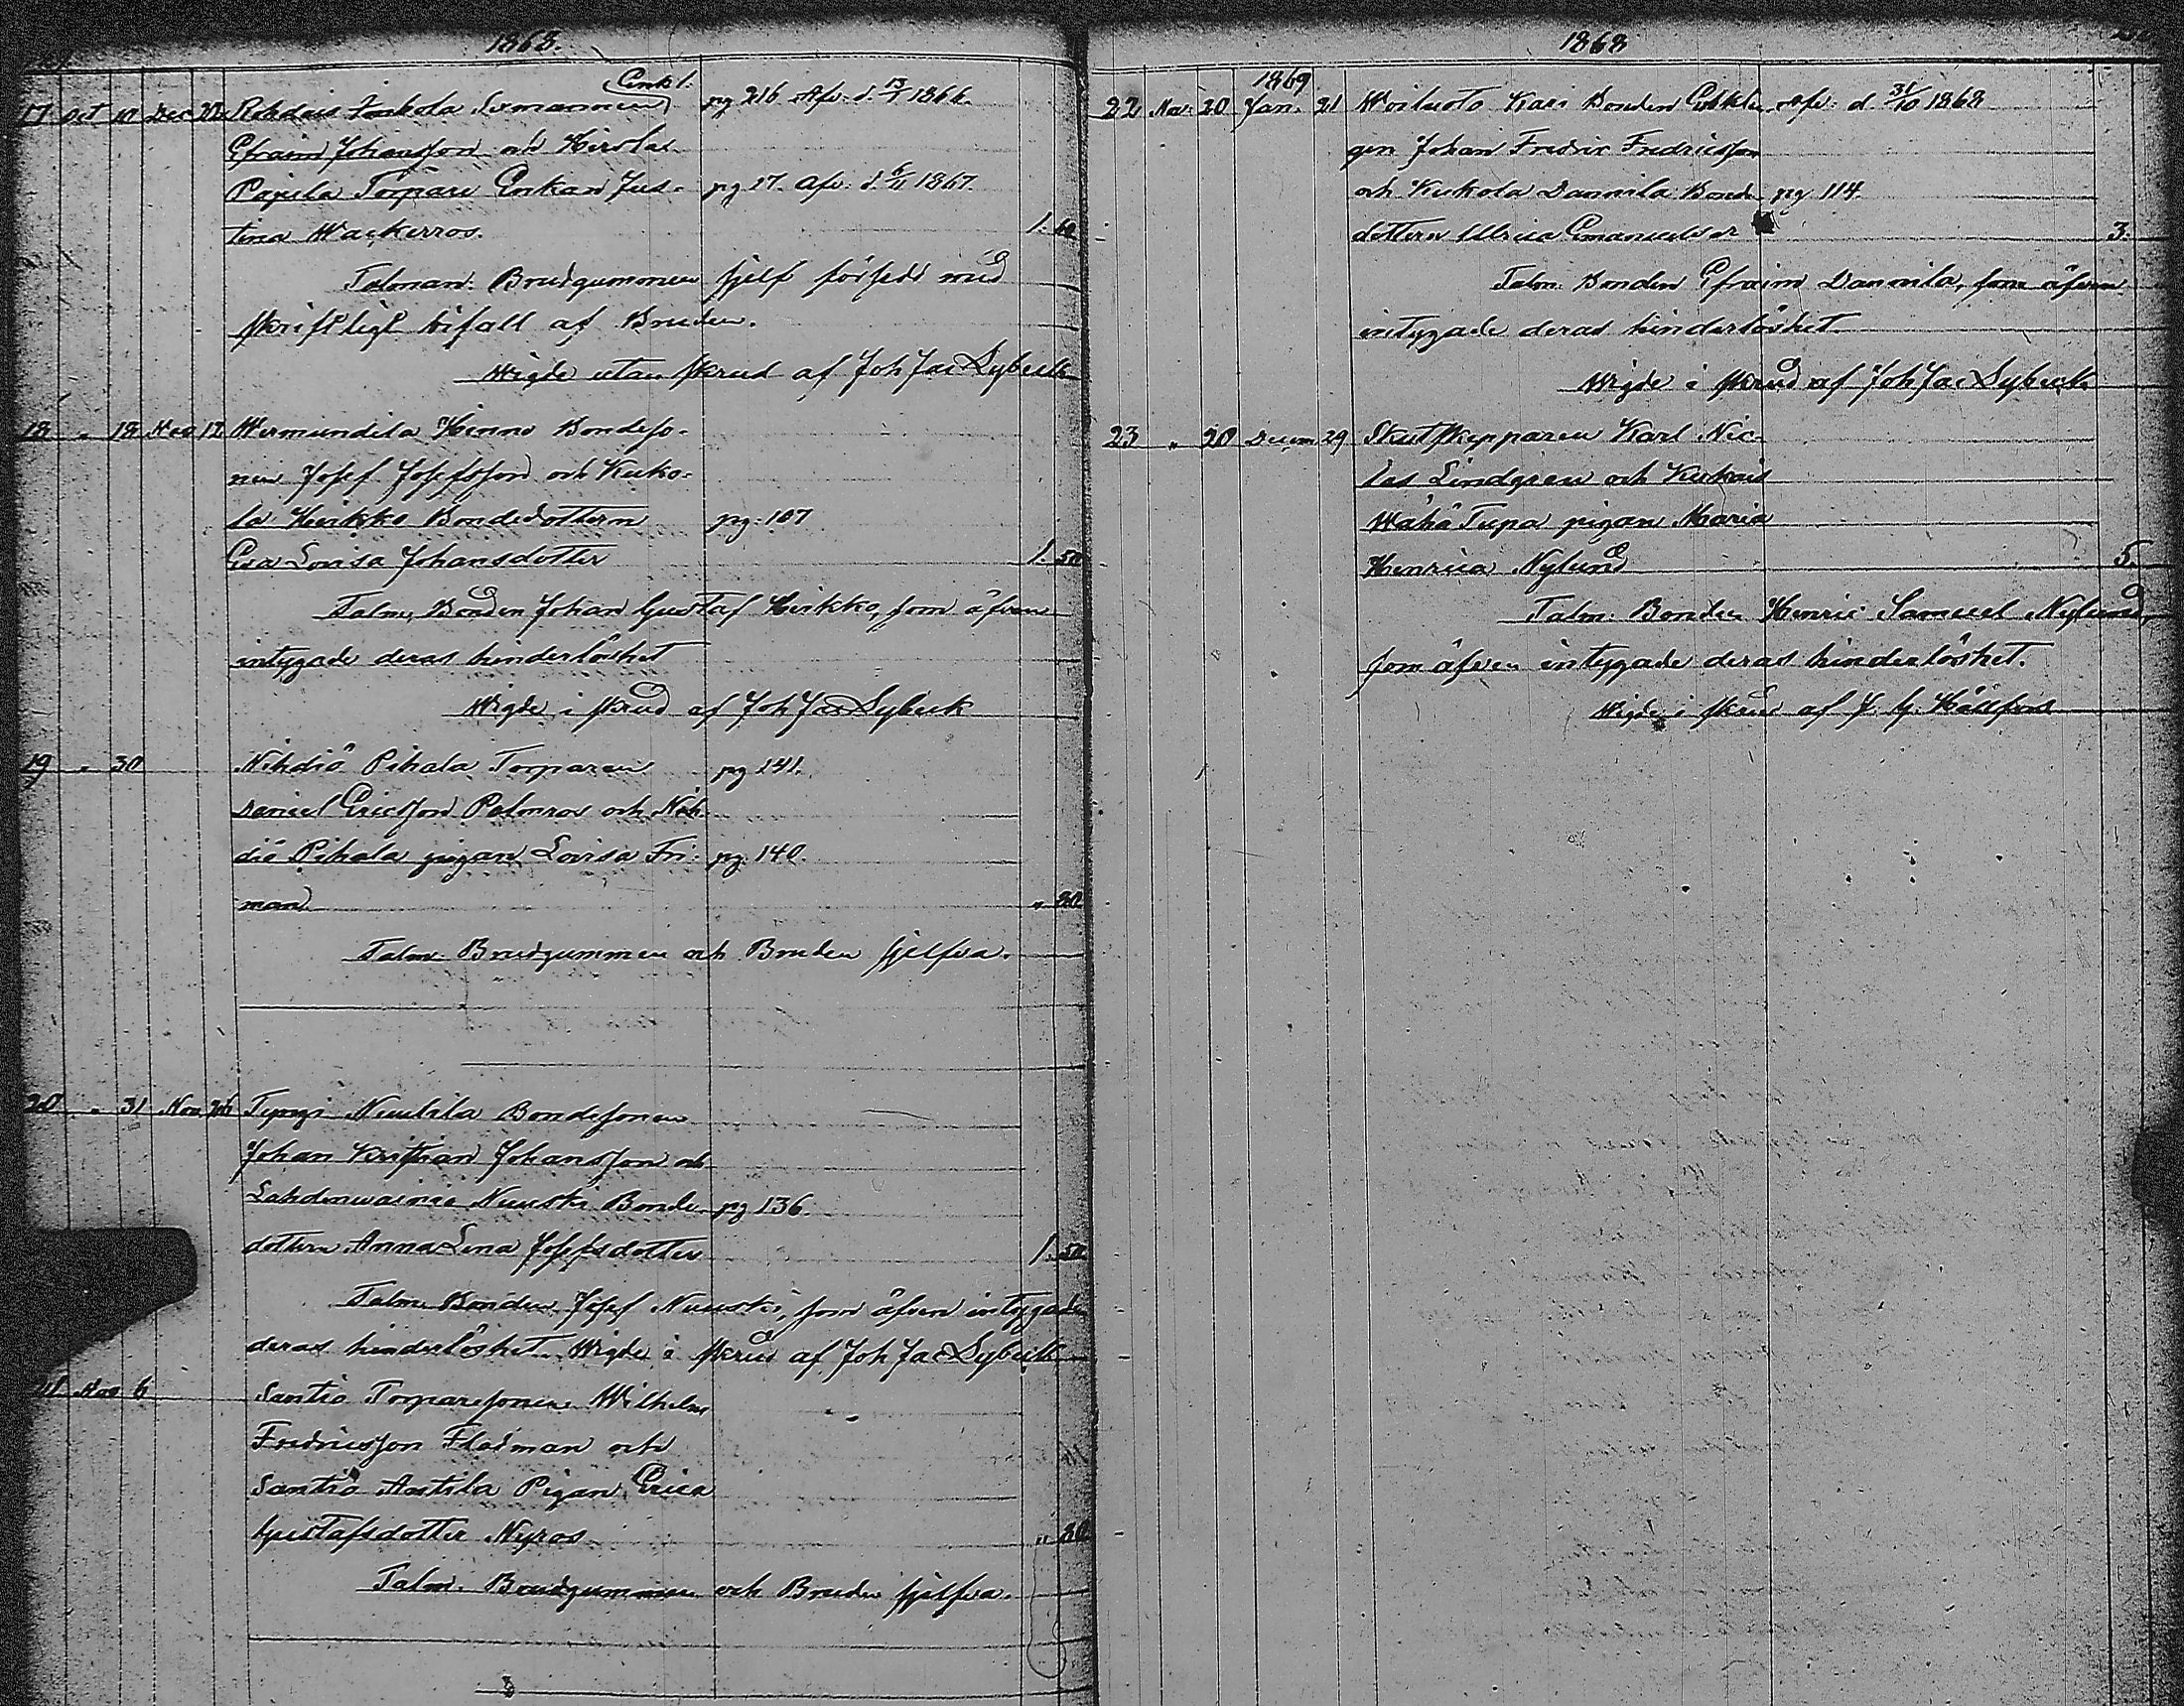 1868.
Enkl.
17 Oct 10 Dec 22 Rohdais Sexmannen pg 216 Afv: d. 13/7 1866.
Efraim Johansson och Hirslax
Pajula Torpare Enkan Jus- pg 17. Afv: d. 6/11 1867.
tina Wackerros. 1. 60
Talman: Brudgummen sjelf försedd med
skriftligt bifall af Bruden.
Wigde utan skrud af Joh Jac Lybeck
18 " 18 Nov 12 Wermundila Hinno Bondeso-
nen Josef Josefsson och Kuko-
la Heikko Bondedottern pg. 107
Eva Lovisa Johansdotter 1. 50
Talm. Bonden Johan Gustaf Heikko, som äfven
intygade deras hinderlöshet
Wigde i skrud af Joh Jac Lybeck
19 " 30 Nihdiö Pihala Torparen pg 141.
Daniel Ericsson Palmros och Nih-
diö Pihala pigan Lovisa Fri- pg. 140.
man " 80
Talm. Brudgummen och Bruden sjelfva.
20 " 31 Nov 26 Typpi Bondesonen
Johan Kristian Johansson och
Nuuski Bonde- pg 136.
dottern Anna Lena Josefsdotter 1. 50
Talm. Bonden Josef Nuuski, som äfven intygade
deras hinderlöshet. Wigde i skrud af Joh Jac Lybeck
21 Nov 6 Santio Torparesonen Wilhelm
Fredricsson Fladman och
Santio Anttila Pigan Erica
Gustafsdotter Nyros " 80
Talm. Brudgummen och Bruden sjelfva.
1868
1869
22 Nov: 20 Jan. 21 Woiluoto Kari Bonden Enklin- Afv: d. 31/10 1868
gen Johan Fredric Fredricsson
och Kukola Dannila Bonde- pg 114.
dottern Ulrica Emanuelsdr 3.
Talm. Bonden Efraim Dannila, som äfven
intygade deras hinderlöshet.
Wigde i skrud af Joh Jac Lybeck
23 " 20 Decem 29 Skutskepparen Karl Nic-
las Lindgren och Kukois
Wähä Tupa pigan Maria
Henrica Nylund 5.
Talm. Bonden Henric Samuel Nylund,
som äfven intygade deras hinderlöshet.
Wigde i skrud af J. G. Hällfors